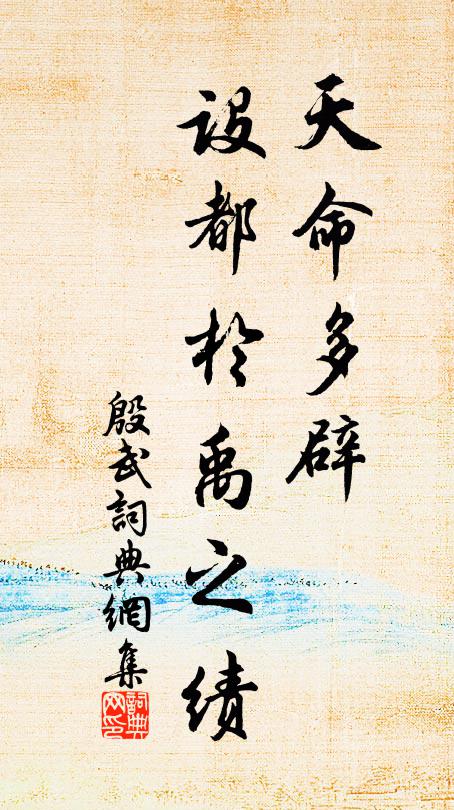 天命多辟
設都於禹之績
殷武詞典網集
詞典
网印